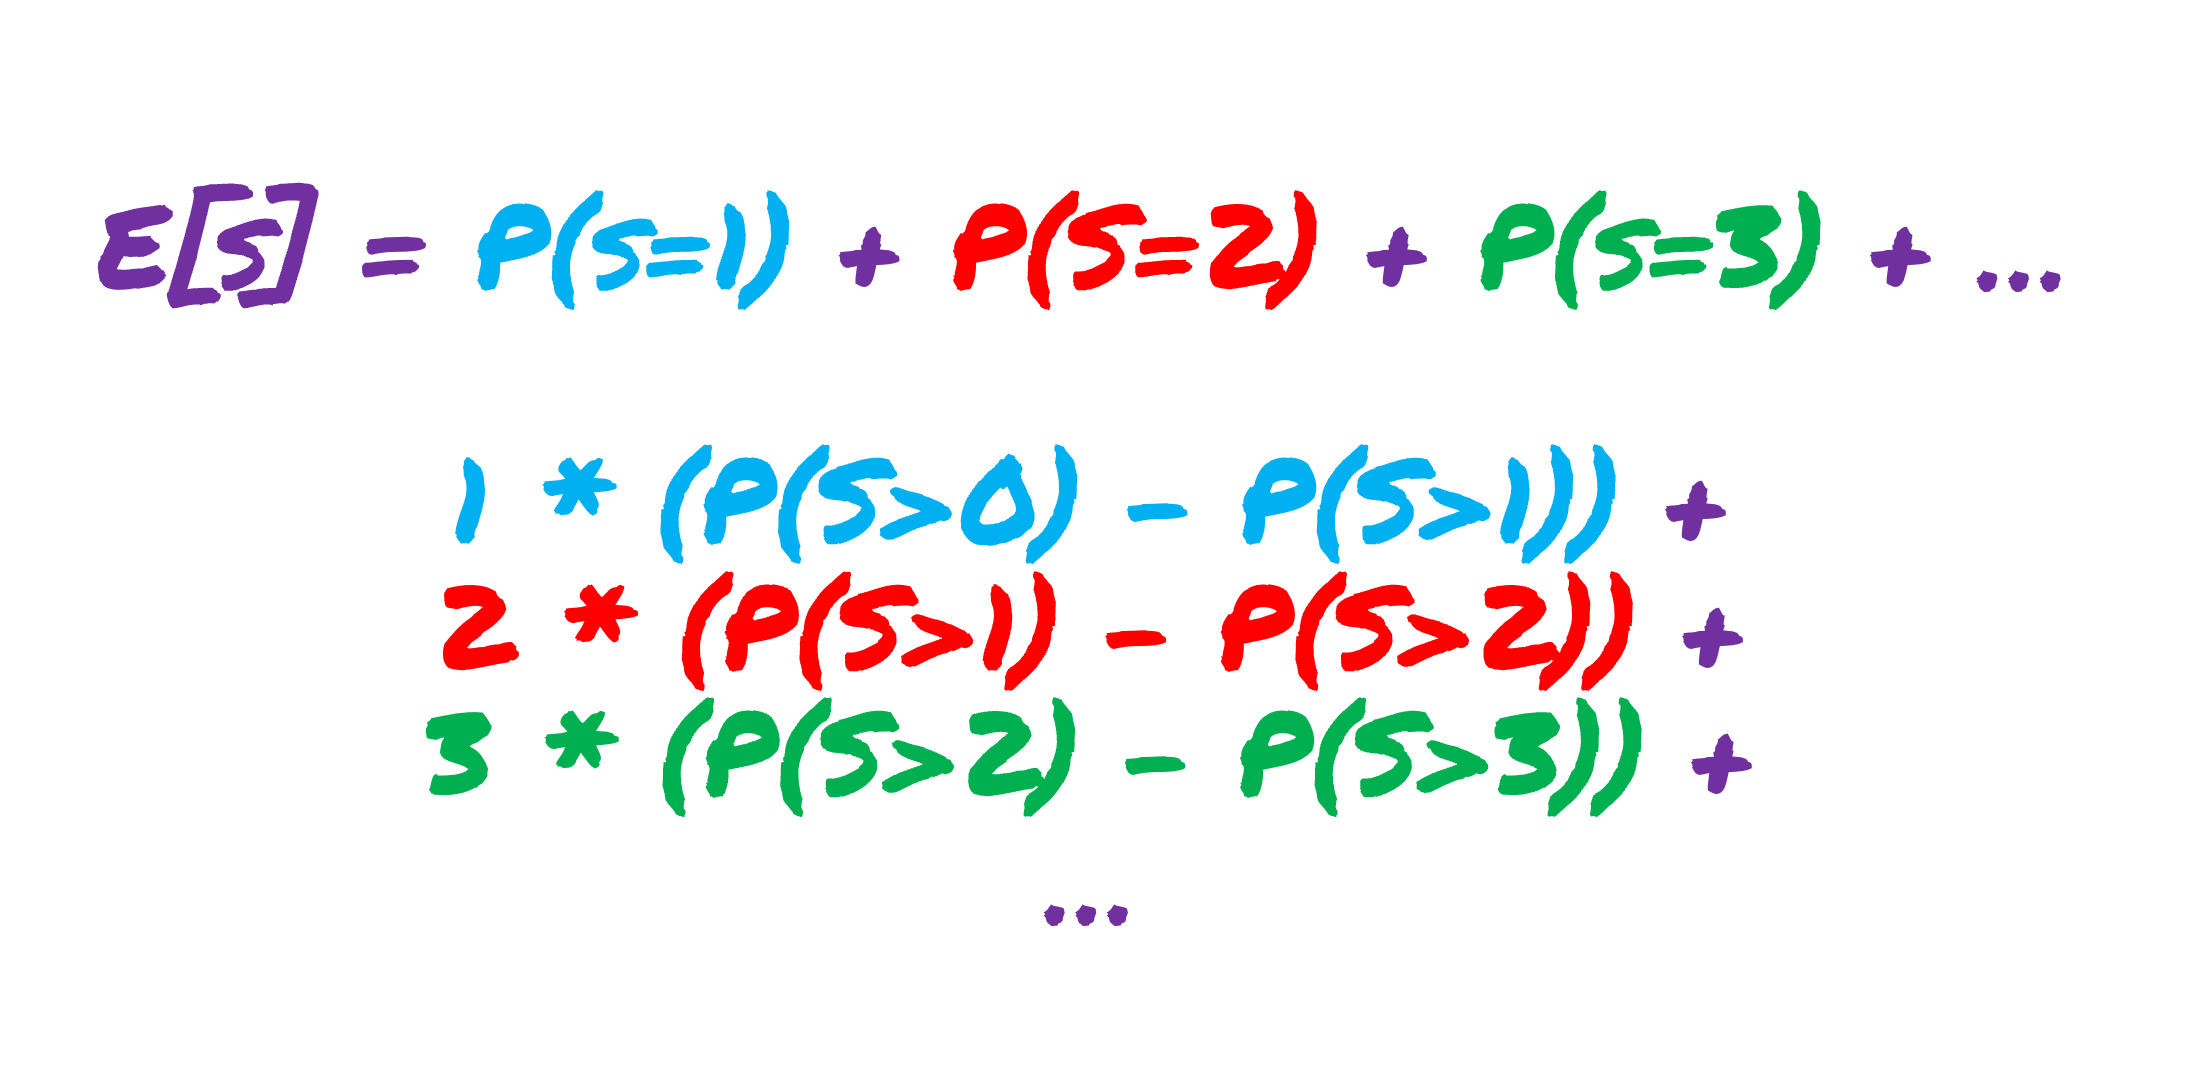 E[S] = P(S=1) + P(S=2) + P(S=3) + ...
1 * (P(S>0) - P(S>1)) +
2 * (P(S>1) - P(S>2)) +
3 * (P(S>2) - P(S>3)) +
...